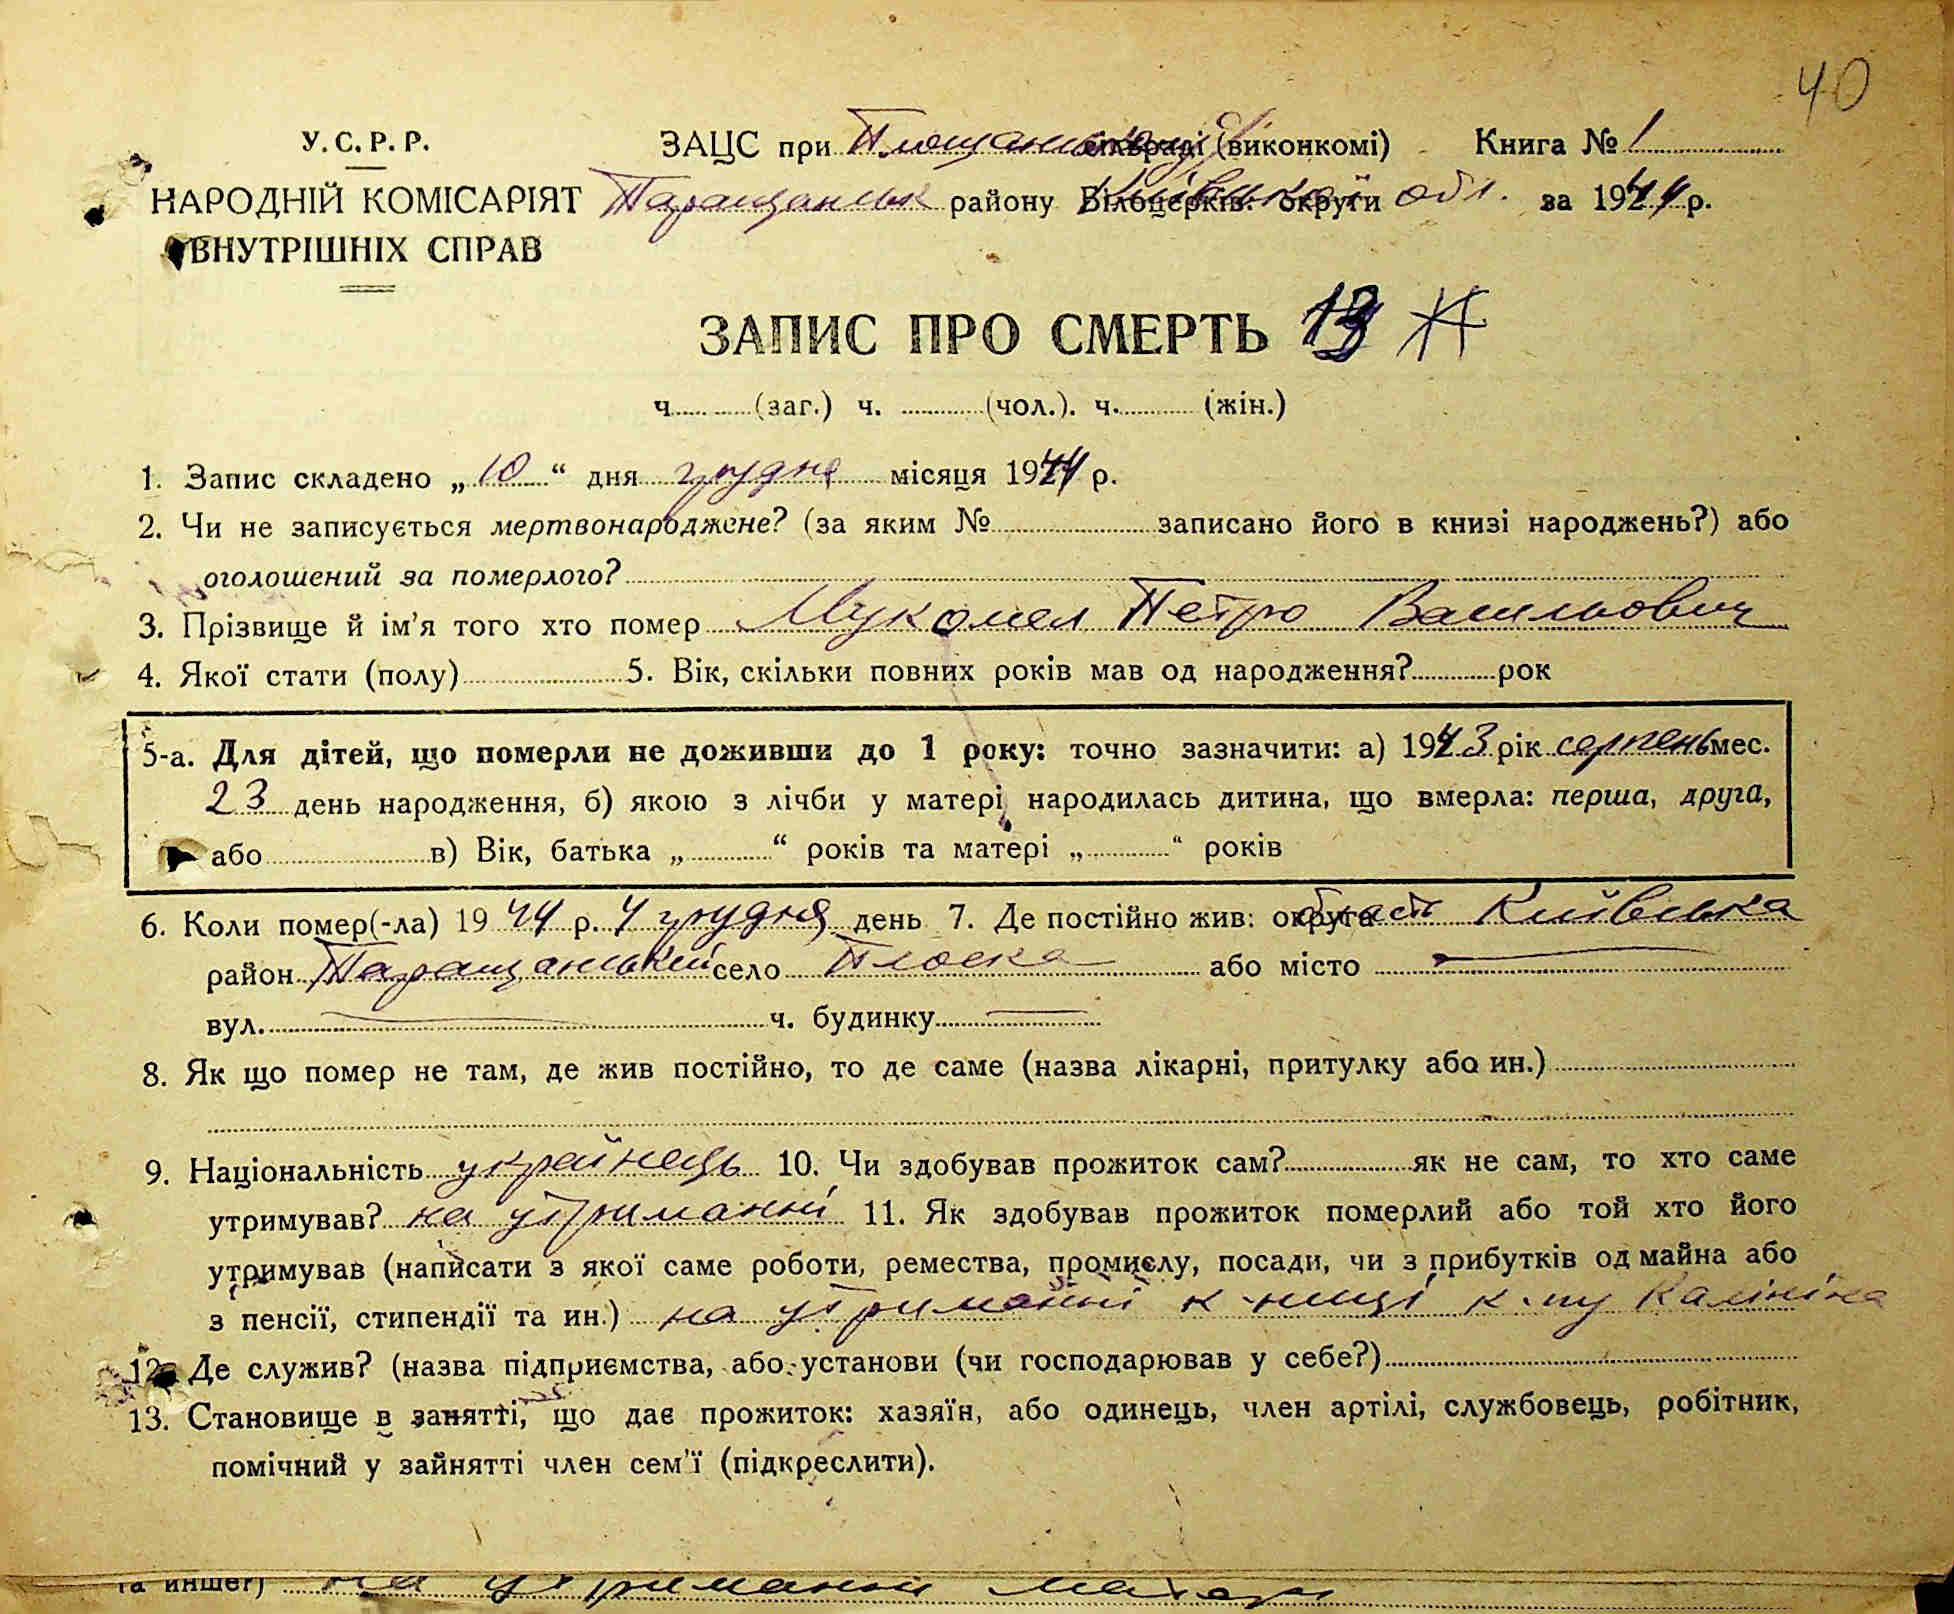 40
У. С. Р. Р.
НАРОДНІЙ КОМІСАРІЯТ
ВНУТРІШНІХ СПРАВ
ЗАЦС при сільраді (виконкомі) Книга № 1
Таращанськ району Білоцерків. округи Київської обл. за 1944 р.
ЗАПИС ПРО СМЕРТЬ 13
ч. (заг.) ч. (чол.). ч. (жін.)
1. Запис складено „10“ дня грудня місяця 1944 р.
2. Чи не записується мертвонароджене? (за яким № записано його в книзі народжень?) або
оголошений за померлого?
3. Прізвище й ім’я того хто помер Мукомел Петро Васильович
4. Якої стати (полу) 5. Вік, скільки повних років мав од народження? рок
5-а. Для дітей, що померли не доживши до 1 року: точно зазначити: а) 1943 рік серпень мес.
23 день народження, б) якою з лічби у матері народилась дитина, що вмерла: перша, друга,
або в) Вік, батька „ “ років та матері „ “ років
6. Коли помер(-ла) 1944 р. 4 грудня день 7. Де постійно жив: округа область Київська
район Таращанський село Плоска або місто —
вул. — ч. будинку —
8. Як що помер не там, де жив постійно, то де саме (назва лікарні, притулку або ин.)
9. Національність українець 10. Чи здобував прожиток сам? як не сам, то хто саме
утримував? на утриманні 11. Як здобував прожиток померлий або той хто його
утримував (написати з якої саме роботи, ремества, промислу, посади, чи з прибутків од майна або
з пенсії, стипендії та ин.) на утриманні к-ниці к-пу Калініна
12. Де служив? (назва підприємства, або установи (чи господарював у себе?)
13. Становище в занятті, що дає прожиток: хазяїн, або одинець, член артілі, службовець, робітник,
помічний у зайнятті член сем’ї (підкреслити).
та инше?) на утриманні матері